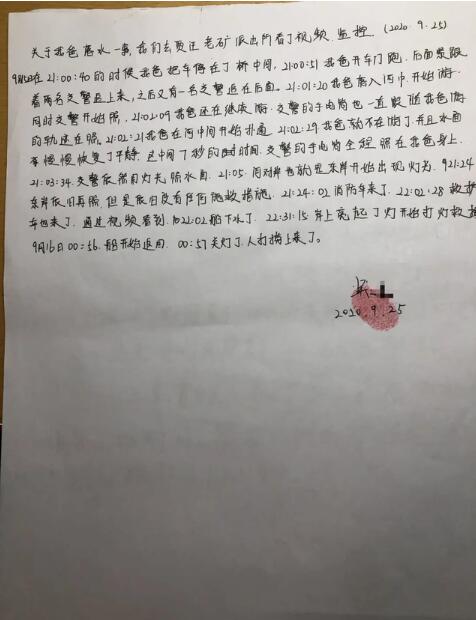 关于我爸落水一事,我们去贾汪老矿派出所看了视频监控. (2020.9.25)
9月15日在21:00:40的时候我爸把车停在了桥中间,21:00:51我爸开车门跑,后面紧跟
着两名交警追上来,之后又有一名交警追在后面. 21:01:20我爸落入河中,开始游.
同时交警开始照, 21:02:09我爸还在继续游,交警的手电筒也一直跟随我爸游
的轨迹在照. 21:02:21我爸在河中间开始扑通. 21:02:29我爸就不在游了.并且水面
慢慢恢复了平静.这中间7秒的时间.交警的手电筒全程照在我爸身上.
21:03:34.交警依然用灯光照水面. 21:05.河对岸也就是东岸开始出现灯光. 921:24
东岸依旧再照.但是依旧没有任何施救措施. 21:24:02消防车来了. 22:02:28救护
车也来了.通过视频看到 22:02船下水了. 22:31:15岸上亮起了灯开始打灯救援
9月16日00:56.船开始返回. 00:57关灯了.人打捞上来了。
2020.9.25